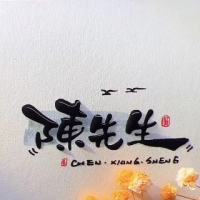 陳先生
CHEN·XIANG·SHENG